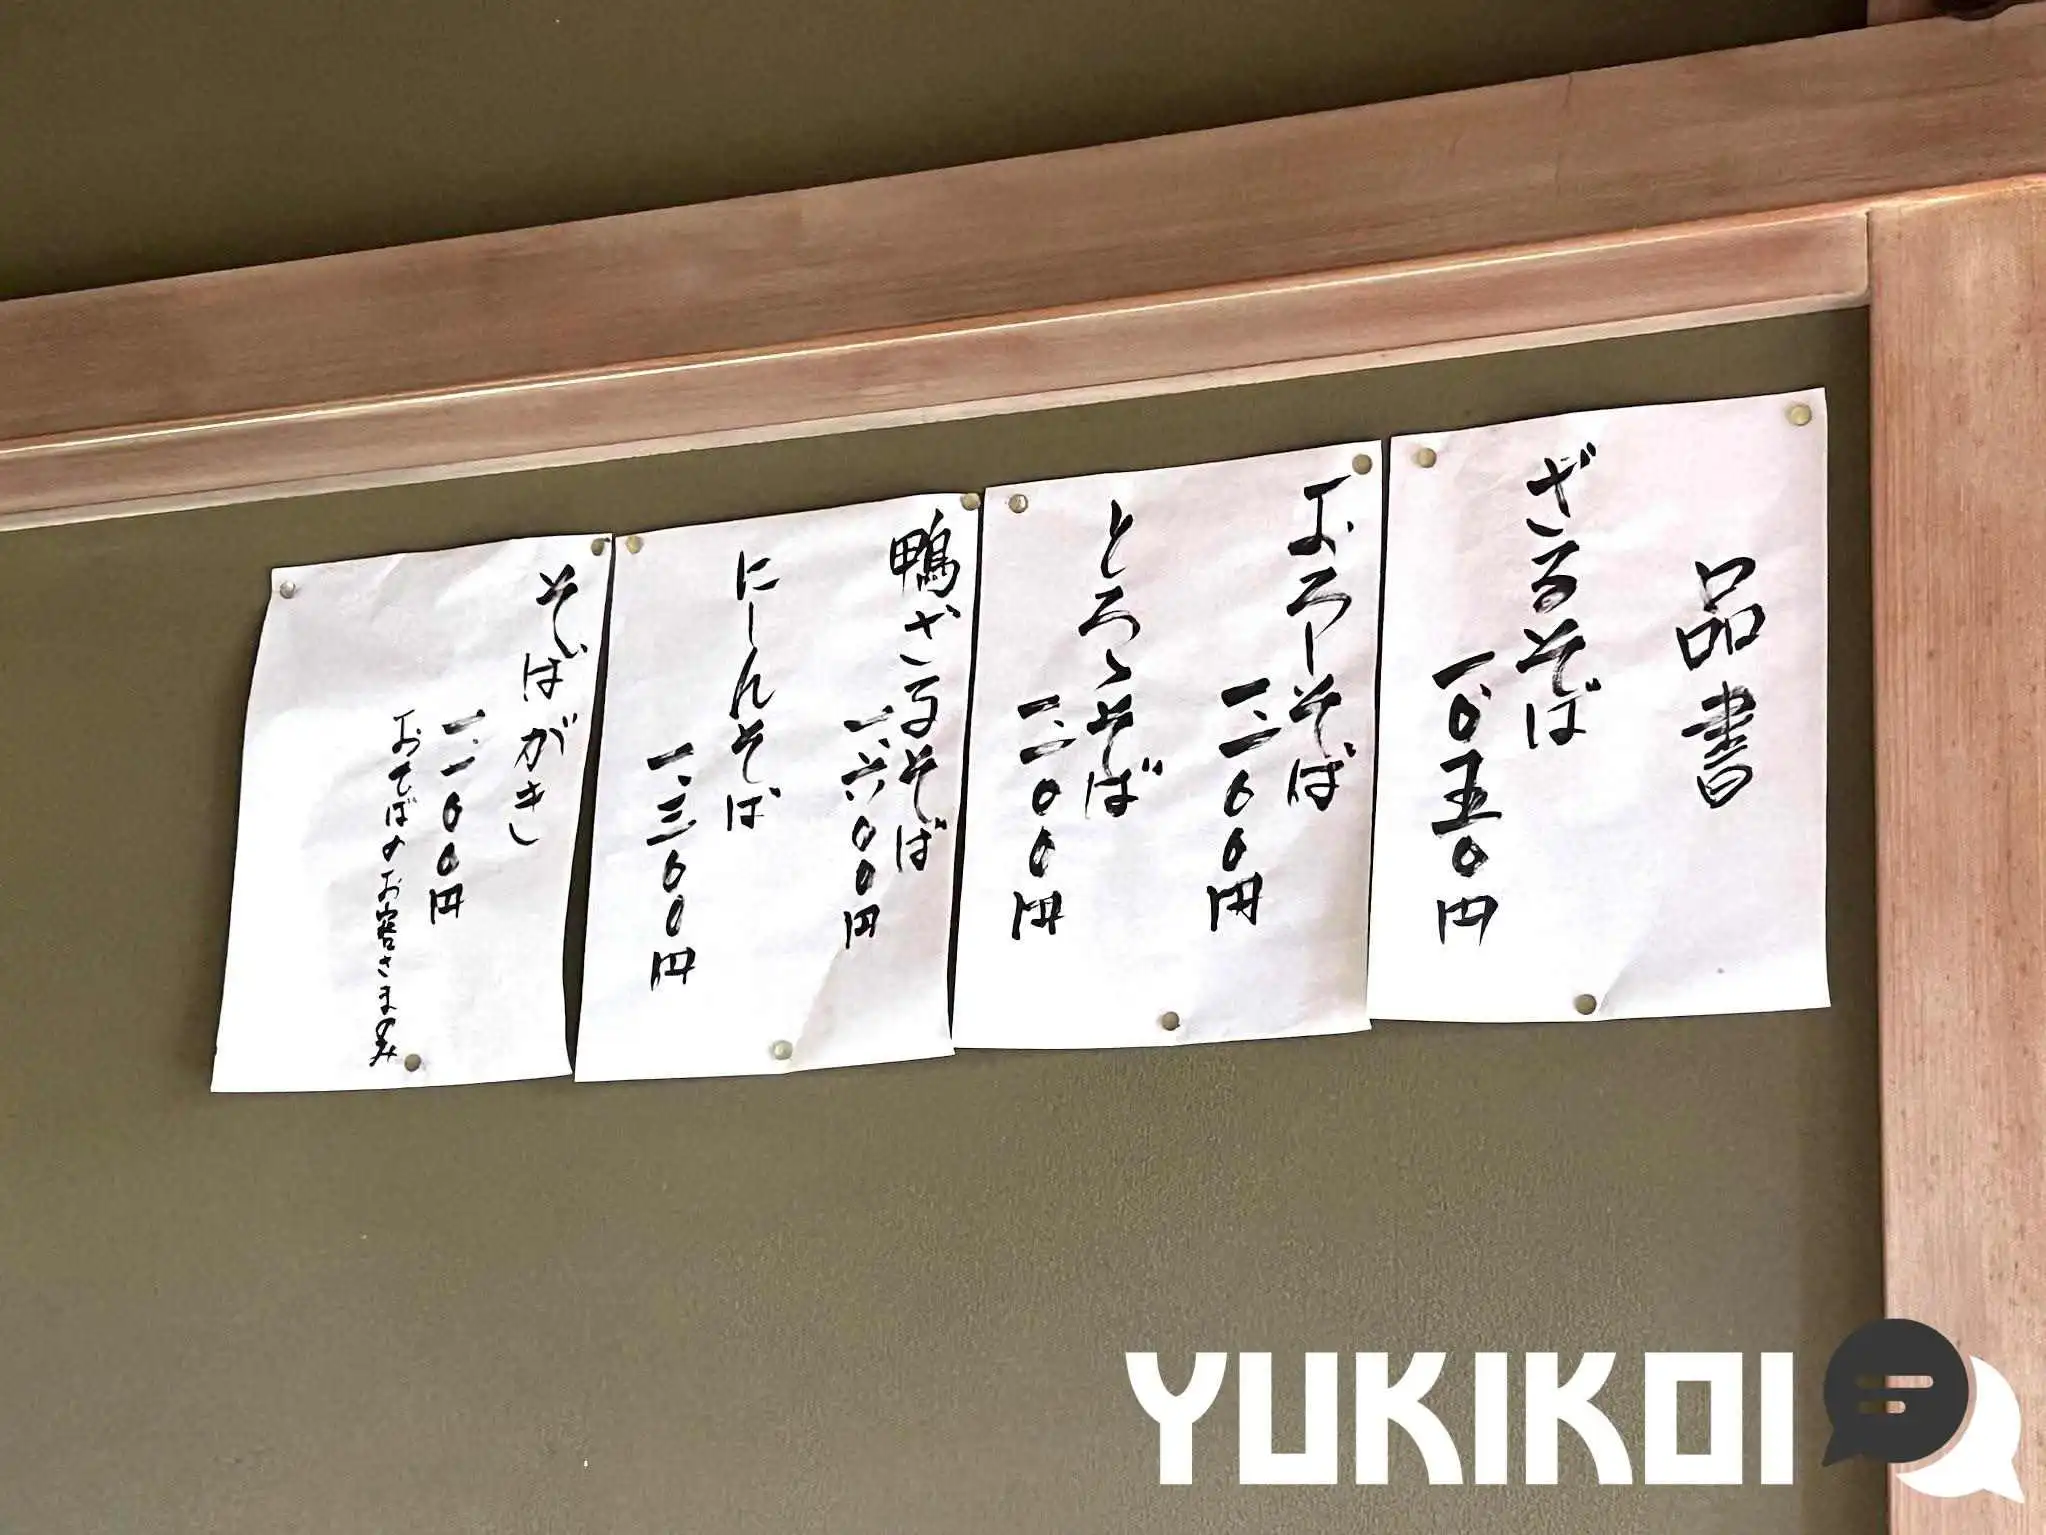 品書
ざるそば
一、０五０円
おろしそば
一、二００円
とろゝそば
一、二００円
鴨ざるそば
一、六００円
にしんそば
一、三００円
そばがき
一、一００円
おそばのお客さまのみ
YUKIKOI